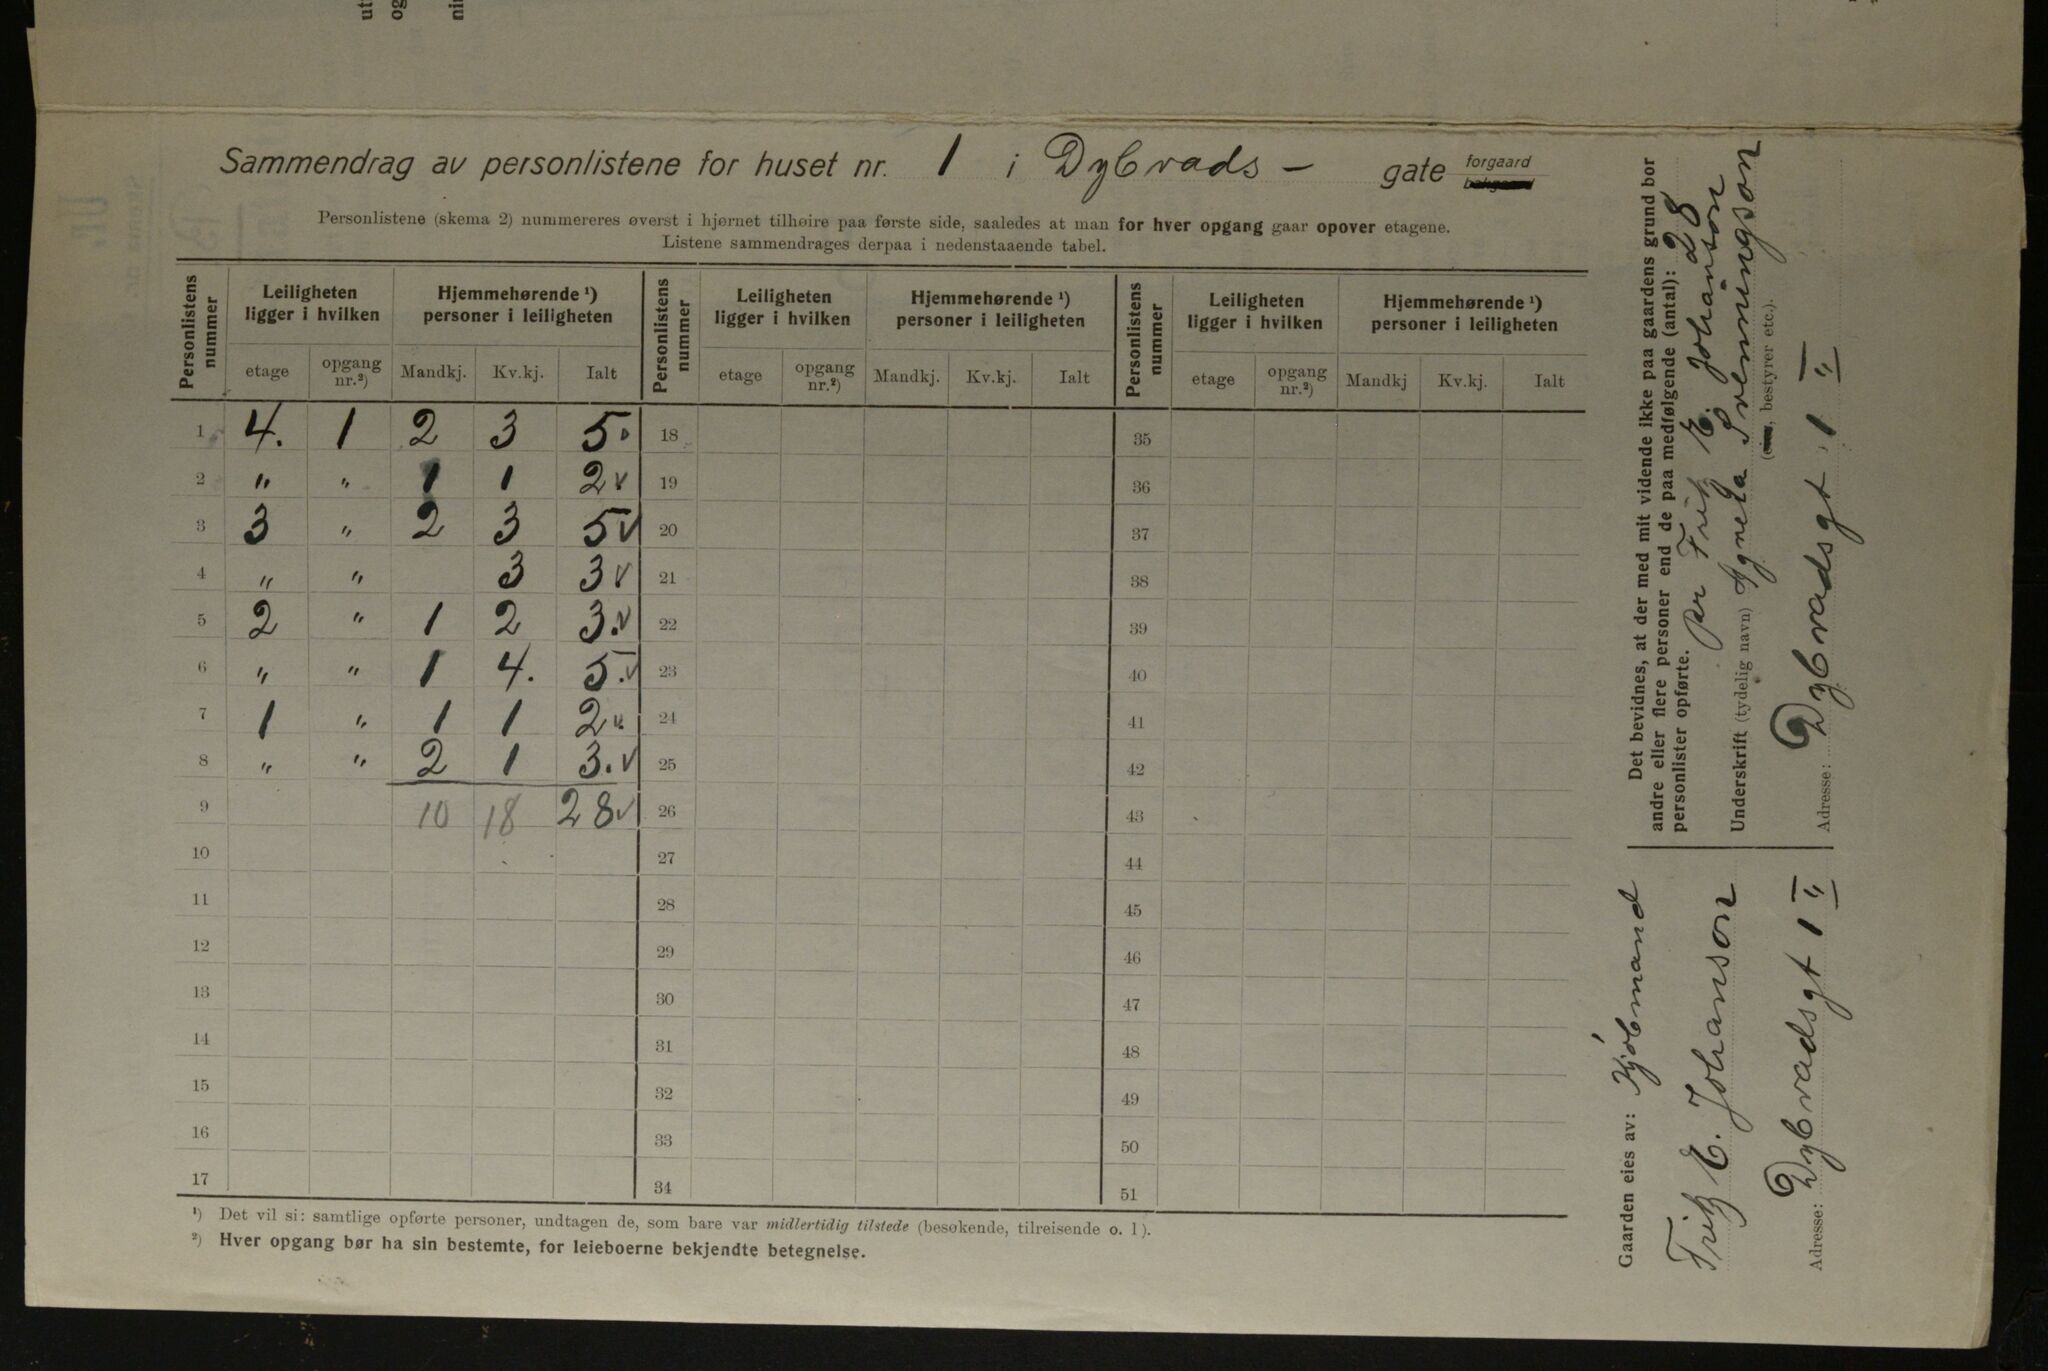 Sammendrag av personlistene for huset nr. 1 i Dybvads- gate forgaard bakgaard
Personlistene (skema 2) nummereres øverst i hjørnet tilhøire paa første side, saaledes at man for hver opgang gaar opover etagene.
Listene sammendrages derpaa i nedenstaaende tabel.
Personlistens nummer | Leiligheten ligger i hvilken | Hjemmehørende ¹) personer i leiligheten | Personlistens nummer | Leiligheten ligger i hvilken | Hjemmehørende ¹) personer i leiligheten | Personlistens nummer | Leiligheten ligger i hvilken | Hjemmehørende ¹) personer i leiligheten
etage | opgang nr.²) | Mandkj. | Kv.kj. | Ialt | etage | opgang nr.²) | Mandkj. | Kv.kj. | Ialt | etage | opgang nr.²) | Mandkj | Kv.kj. | Ialt
1 4. 1 2 3 5. 18 35
2 " " 1 1 2 v 19 36
3 3 " 2 3 5 v 20 37
4 " " 3 3 v 21 38
5 2 " 1 2 3. v 22 39
6 " " 1 4. 5. v 23 40
7 1 " 1 1 2 v 24 41
8 " " 2 1 3. v 25 42
9 10 18 28 v 26 43
10 27 44
11 28 45
12 29 46
13 30 47
14 31 48
15 32 49
16 33 50
17 34 51
¹) Det vil si: samtlige opførte personer, undtagen de, som bare var midlertidig tilstede (besøkende, tilreisende o. l).
²) Hver opgang bør ha sin bestemte, for leieboerne bekjendte betegnelse.
Det bevidnes, at der med mit vidende ikke paa gaardens grund bor
andre eller flere personer end de paa medfølgende (antal): 28
personlister opførte. per Fritz E. Johanson
Underskrift (tydelig navn) Agneta Svenningson
(eier, bestyrer etc.).
Adresse: Dybvadsgt. 1 II
Gaarden eies av: Kjøbmand
Fritz E. Johanson
Adresse: Dybvadsgt 1 II